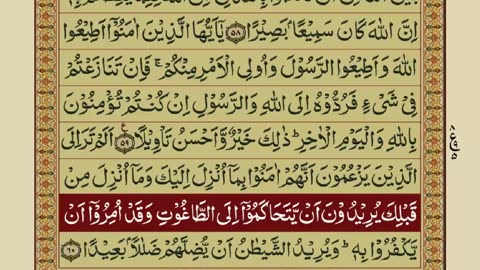 اِنَّ اللّٰهَ كَانَ سَمِيْعًاۢ بَصِيْرًا ﴿۵۸﴾ يٰۤاَيُّهَا الَّذِيْنَ اٰمَنُوْۤا اَطِيْعُوا
اللّٰهَ وَاَطِيْعُوا الرَّسُوْلَ وَاُولِى الْاَمْرِ مِنْكُمْ ۚ فَاِنْ تَنَازَعْتُمْ
فِىْ شَىْءٍ فَرُدُّوْهُ اِلَى اللّٰهِ وَالرَّسُوْلِ اِنْ كُنْتُمْ تُؤْمِنُوْنَ
بِاللّٰهِ وَالْيَوْمِ الْاٰخِرِ ؕ ذٰلِكَ خَيْرٌ وَّاَحْسَنُ تَاْوِيْلًا ﴿۵۹﴾ ع اَلَمْ تَرَ اِلَى
الَّذِيْنَ يَزْعُمُوْنَ اَنَّهُمْ اٰمَنُوْا بِمَاۤ اُنْزِلَ اِلَيْكَ وَمَاۤ اُنْزِلَ مِنْ
قَبْلِكَ يُرِيْدُوْنَ اَنْ يَّتَحَاكَمُوْۤا اِلَى الطَّاغُوْتِ وَقَدْ اُمِرُوْۤا اَنْ
يَّكْفُرُوْا بِهٖ ؕ وَيُرِيْدُ الشَّيْطٰنُ اَنْ يُّضِلَّهُمْ ضَلٰلًاۢ بَعِيْدًا ﴿۶۰﴾